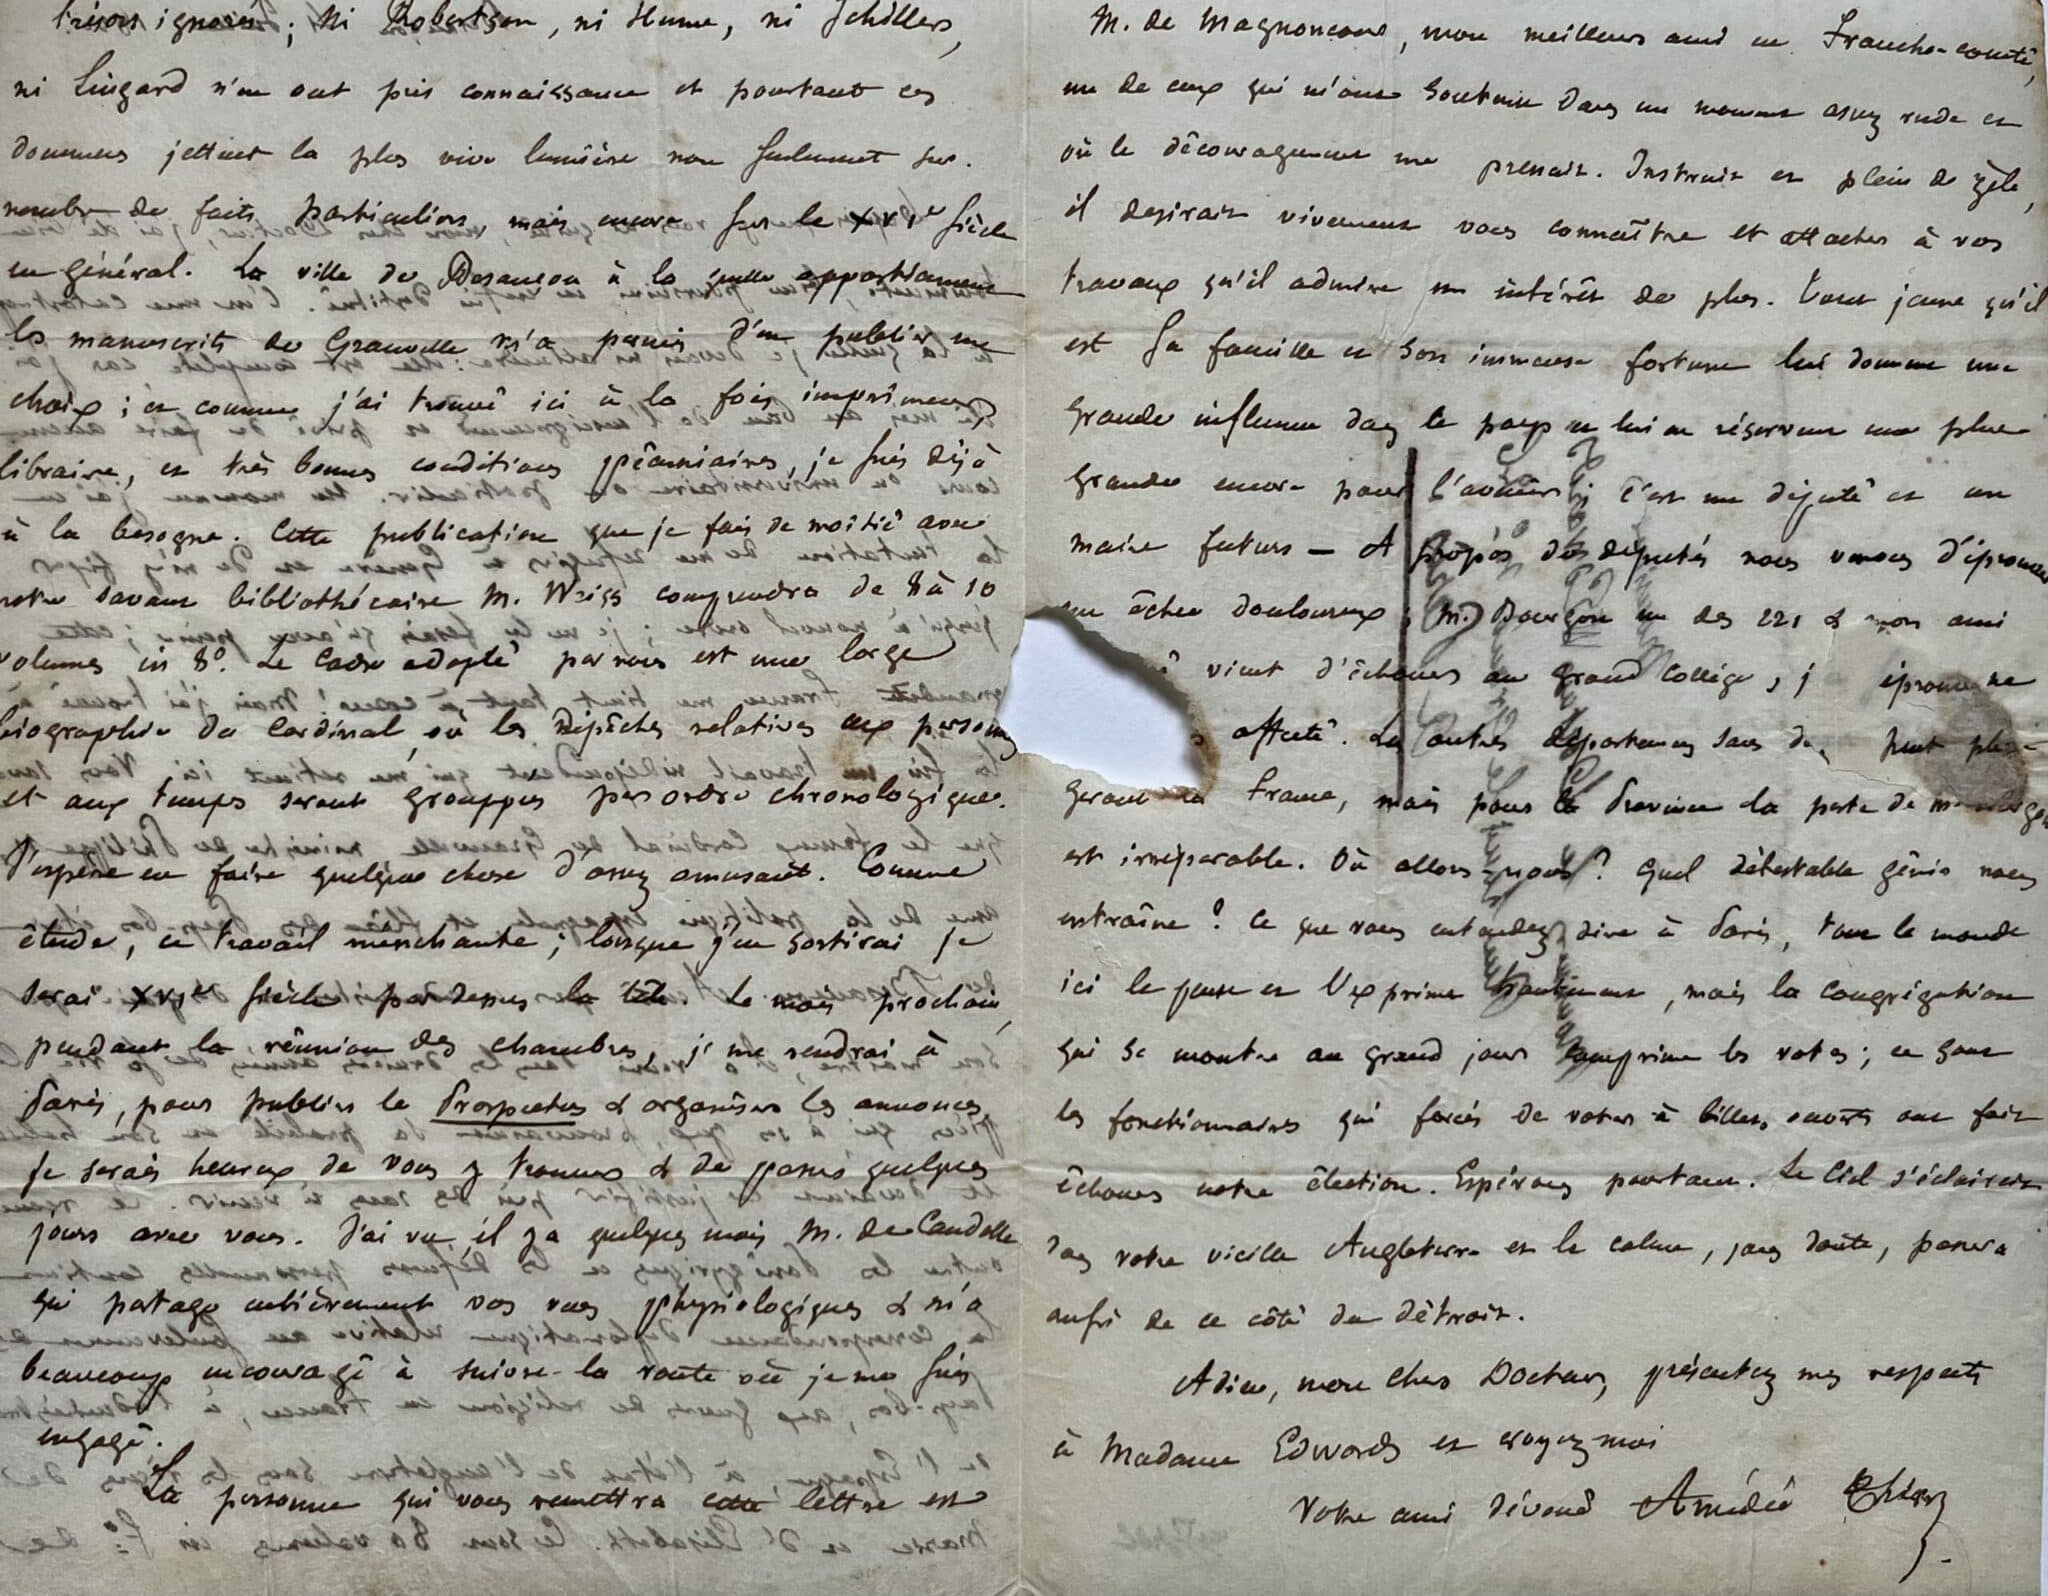 trésors ignorés ; ni Robertson, ni Hume, ni Schillers,
ni Lingard n'en ont pris connaissance et pourtant ces
documens jettent la plus vive lumière non seulement sur
nombre de faits particuliers, mais encore sur le XVIe siècle
en général. La ville de Besançon à laquelle appartiennent
les manuscrits de Granvelle m'a permis d'en publier un
choix ; et comme j'ai trouvé ici à la fois imprimeur,
libraire, et très bonnes conditions pécuniaires, je suis déjà
à la besogne. Cette publication que je fais de moitié avec
notre savant bibliothécaire M. Weiss comprendra de 8 à 10
volumes in 8o. Le cadre adopté par nous est une large
biographie du Cardinal, où les dépêches relatives aux personnes
et aux temps seront grouppés par ordre chronologique.
J'espère en faire quelque chose d'assez amusant. Comme
étude, ce travail m'enchante ; lorsque j'en sortirai je
serai XVIe siècle par dessus la tête. Le mois prochain,
pendant la réunion des chambres, je me rendrai à
Paris, pour publier le Prospectus & organiser les annonces,
je serais heureux de vous y trouver & de passer quelques
jours avec vous. J'ai vu, il y a quelques mois M. de Candolle
qui partage entièrement vos vues physiologiques & m'a
beaucoup encouragé à suivre la route où je me suis
engagé.
La personne qui vous remettra cette lettre est
M. de Magnoncour, mon meilleur ami en Franche-comté,
un de ceux qui m'ont soutenu dans un moment assez rude et
où le découragement me prenait. Instruit et plein de zèle,
il desirait vivement vous connaître et attacher à vos
travaux qu'il admire un intérêt de plus. Tout jeune qu'il
est sa famille et son immense fortune lui donnent une
grande influence dans le pays et lui en réservent une plus
grande encore pour l'avenir ; c'est un député et un
maire futurs — A propos de députés nous venons d'éprouver
un échec douloureux ; M. Bourgon un des 221 & mon ami
vient d'échouer au grand Collège, j'
affecté. Les autres départemens sans
la France, mais pour la Province la perte de
est irréparable. Où allons-nous ? Quel détestable génie nous
entraîne ? Ce que vous entendez dire à Paris, tout le monde
ici le pense et l'exprime hautement, mais la Congrégation
qui se montre au grand jour comprime les votes ; ce sont
les fonctionnaires qui forcés de voter à billets ouverts ont fait
échouer notre élection. Espérons pourtant. Le Ciel s'éclaircit
dans votre vieille Angleterre et le calme, sans doute, passera
aussi de ce côté du détroit.
Adieu, mon cher Docteur, présentez mes respects
à Madame Edwards et croyez moi
Votre ami dévoué Amédée Thierry